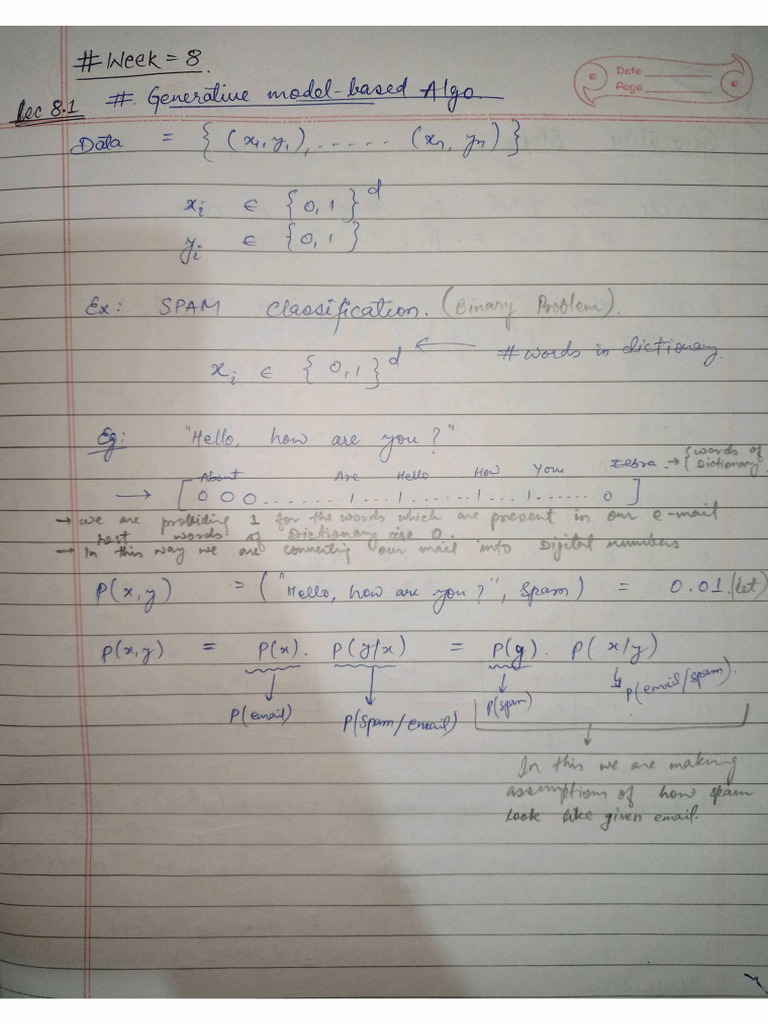 # Week = 8
Date
Page
Lec 8.1 # Generative model-based Algo
Data = { (x₁, y₁), ..... (xₙ, yₙ) }
xᵢ ∈ {0, 1}ᵈ
yᵢ ∈ {0, 1}
Ex: SPAM Classification. (Binary Problem).
xᵢ ∈ {0, 1}ᵈ ← # words in dictionary.
Eg: "Hello, how are you?"
About Are Hello How You zebra → { words of Dictionary
→ [ 0 0 0 ....... 1 ... 1 ...... 1 ... 1 ...... 0 ]
→ we are probiding 1 for the words which are present in our e-mail
rest words of Dictionary are 0.
→ In this way we are converting our mail into Digital numbers
P(x, y) = ("Hello, how are you?", spam) = 0.01 (let)
P(x, y) = P(x). P(y/x) = P(y). P(x/y)
P(email) P(spam/email) P(spam) P(email/spam).
In this we are making
assumptions of how spam
look like given email.